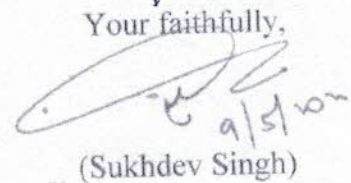 Your faithfully,
(Sukhdev Singh)